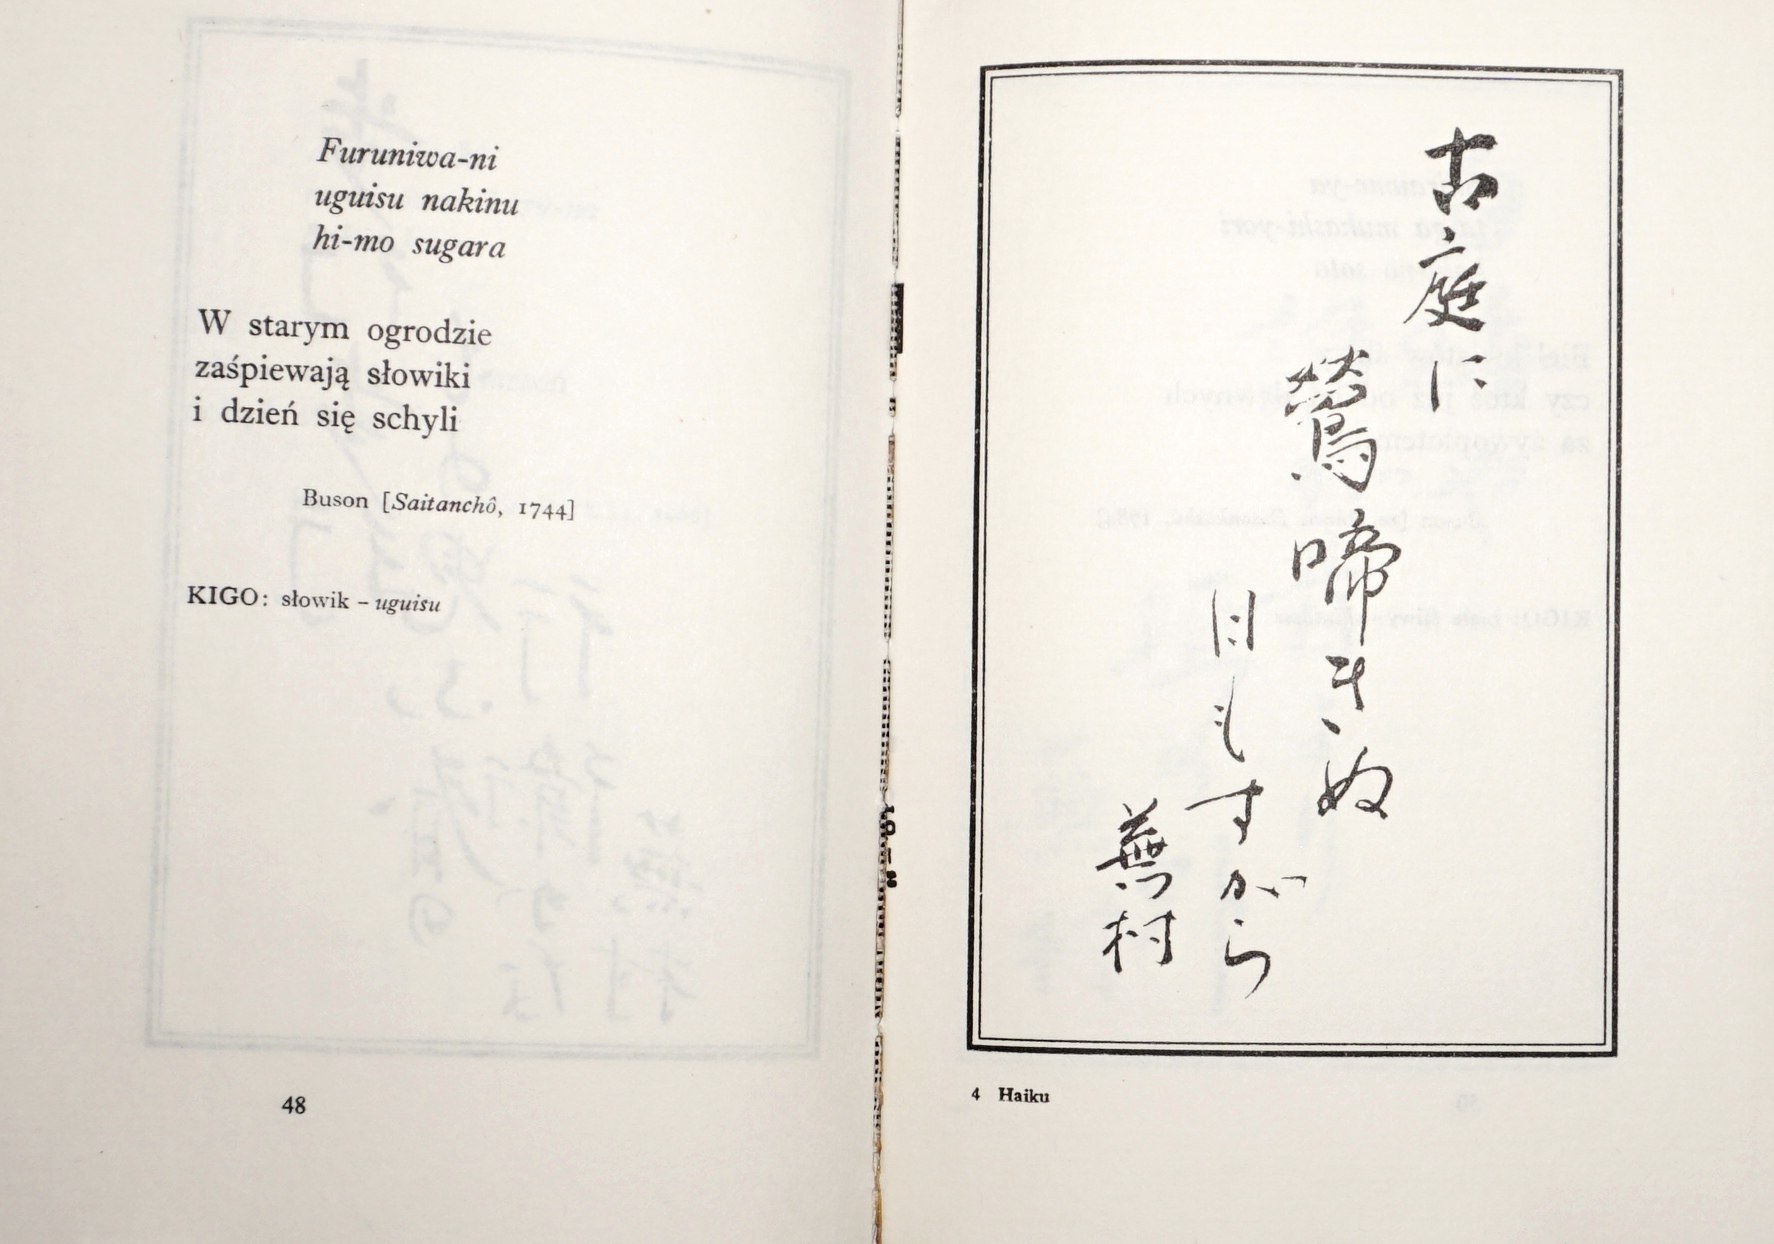 Furuniwa-ni
uguisu nakinu
hi-mo sugara
W starym ogrodzie
zaśpiewają słowiki
i dzień się schyli
Buson [Saitanchô, 1744]
KIGO: słowik – uguisu
48
古庭に
鶯啼きぬ
日もすがら
蕪村
4 Haiku